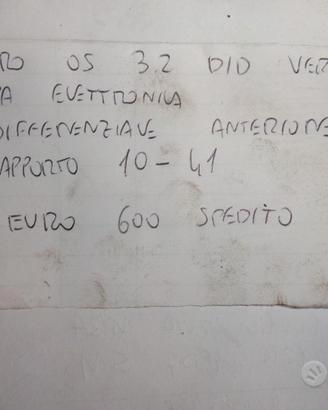 RO OS 3.2 DID VER
A ELETTRONICA
DIFFERENZIALE ANTERIORE
APPORTO 10-41
EURO 600 SPEDITO